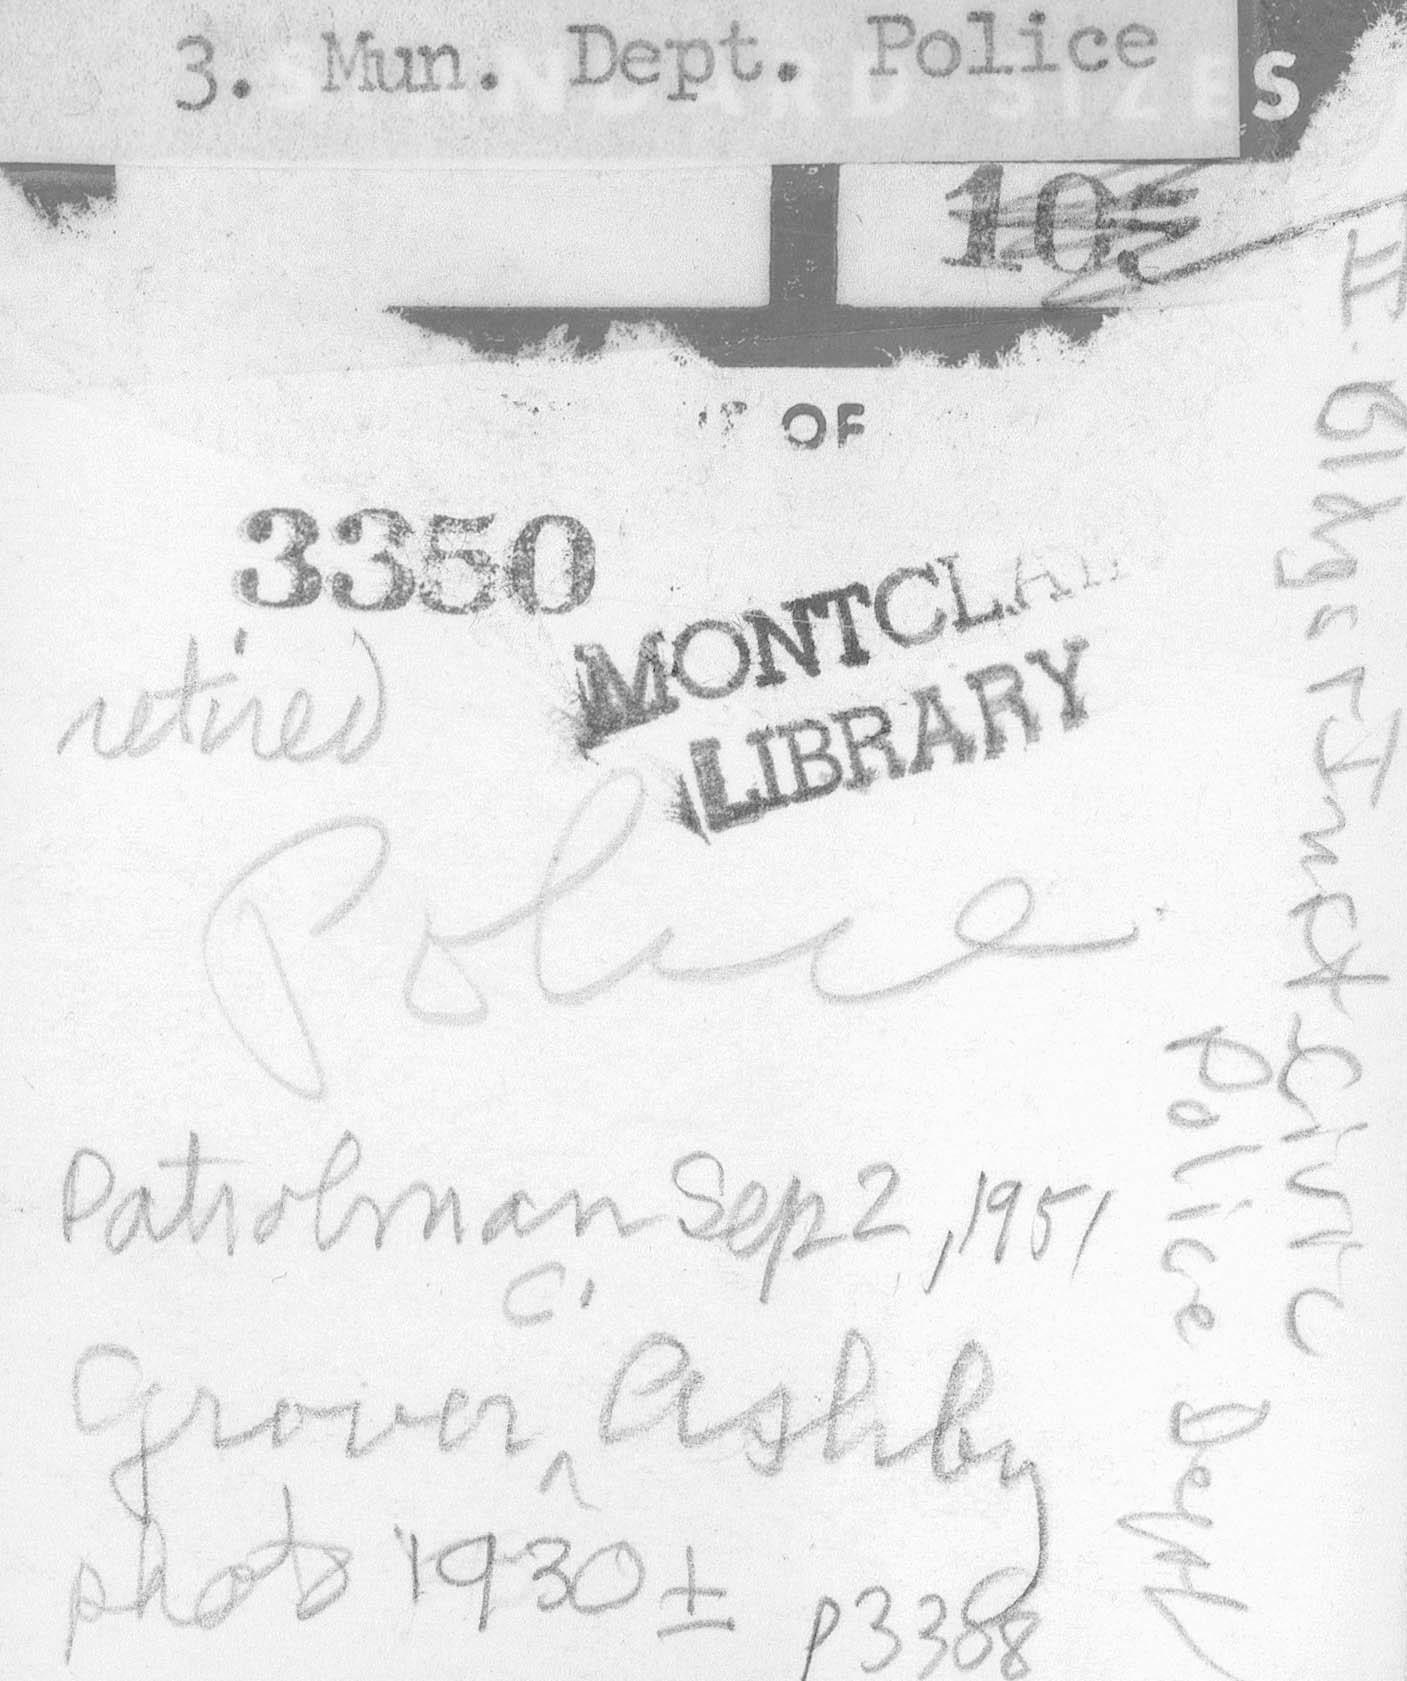 3. Mun. Dept. Police
STANDARD SIZES
105
OF
3350
MONTCLAIR
LIBRARY
retired
Police
Patrolman Sep 2, 1951
C.
Grover ^ Ashby
photo 1930 ±
p3388
II. Bldgs & Inst Civic
Police Dept